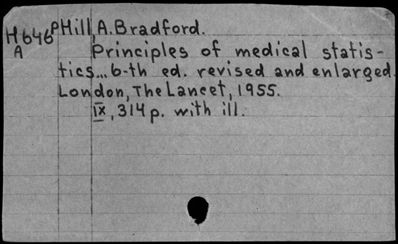 H646 P Hill, A. Bradford.
A Principles of medical statis-
tics... 6-th ed. revised and enlarged.
London, The Lancet, 1955.
IX, 314 p. with ill.